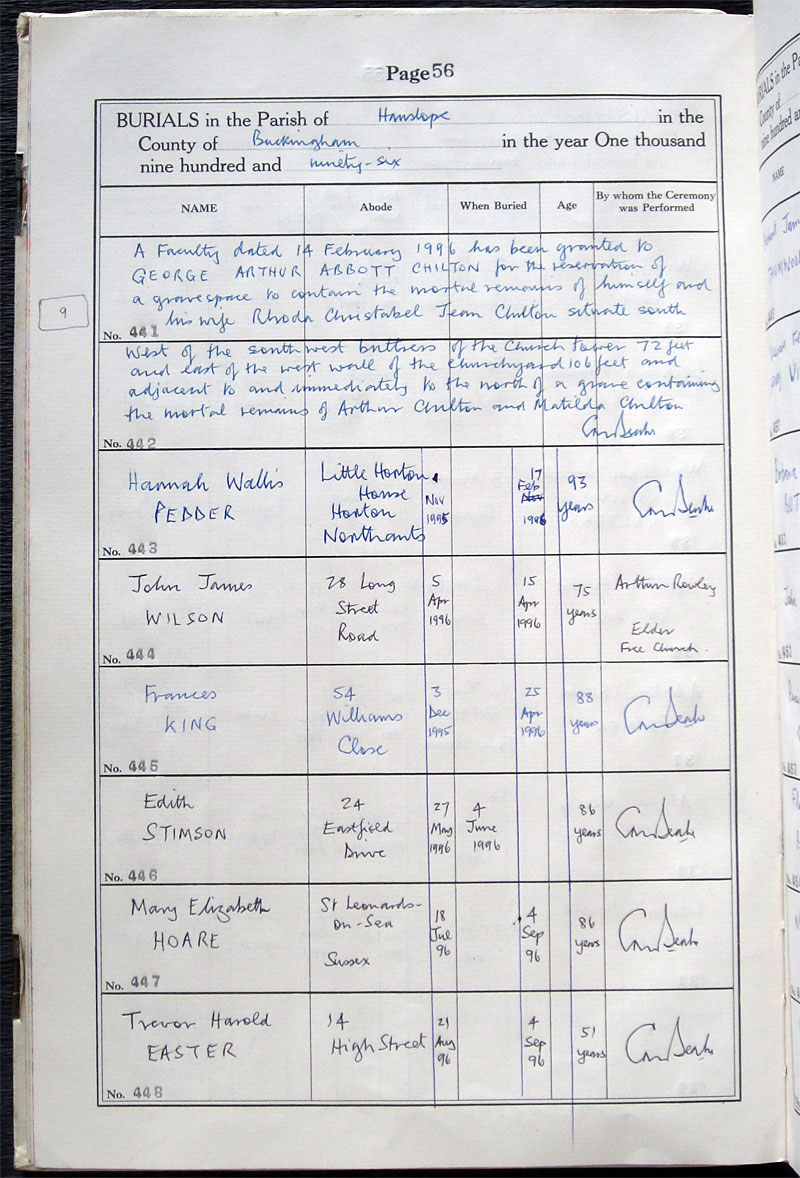 Page 56
BURIALS in the Parish of Hanslope in the
County of Buckingham in the year One thousand
nine hundred and ninety-six
NAME Abode When Buried Age By whom the Ceremony was Performed
A Faculty dated 14 February 1996 has been granted to
GEORGE ARTHUR ABBOTT CHILTON for the reservation of
a gravespace to contain the mortal remains of himself and
his wife Rhoda Christabel Jean Chilton situate south
9
No. 441
West of the south west buttress of the Church tower 72 feet
and east of the west wall of the churchyard 106 feet and
adjacent to and immediately to the north of a grave containing
the mortal remains of Arthur Chilton and Matilda Chilton
No. 442
Hannah Wallis
PEDDER
Little Horton
House
Horton
Northants
Nov
1995
17
Feb
Nov
1996
93
years
No. 443
John James
WILSON
28 Long
Street
Road
5
Apr
1996
15
Apr
1996
75
years
Arthur Rowley
Elder
Free Church.
No. 444
Frances
KING
54
Williams
Close
3
Dec
1995
25
Apr
1996
88
years
No. 445
Edith
STIMSON
24
Eastfield
Drive
27
May
1996
4
June
1996
86
years
No. 446
Mary Elizabeth
HOARE
St Leonards-
on-Sea
Sussex
18
Jul
96
4
Sep
96
86
years
No. 447
Trevor Harold
EASTER
14
High Street
21
Aug
96
4
Sep
96
51
years
No. 448